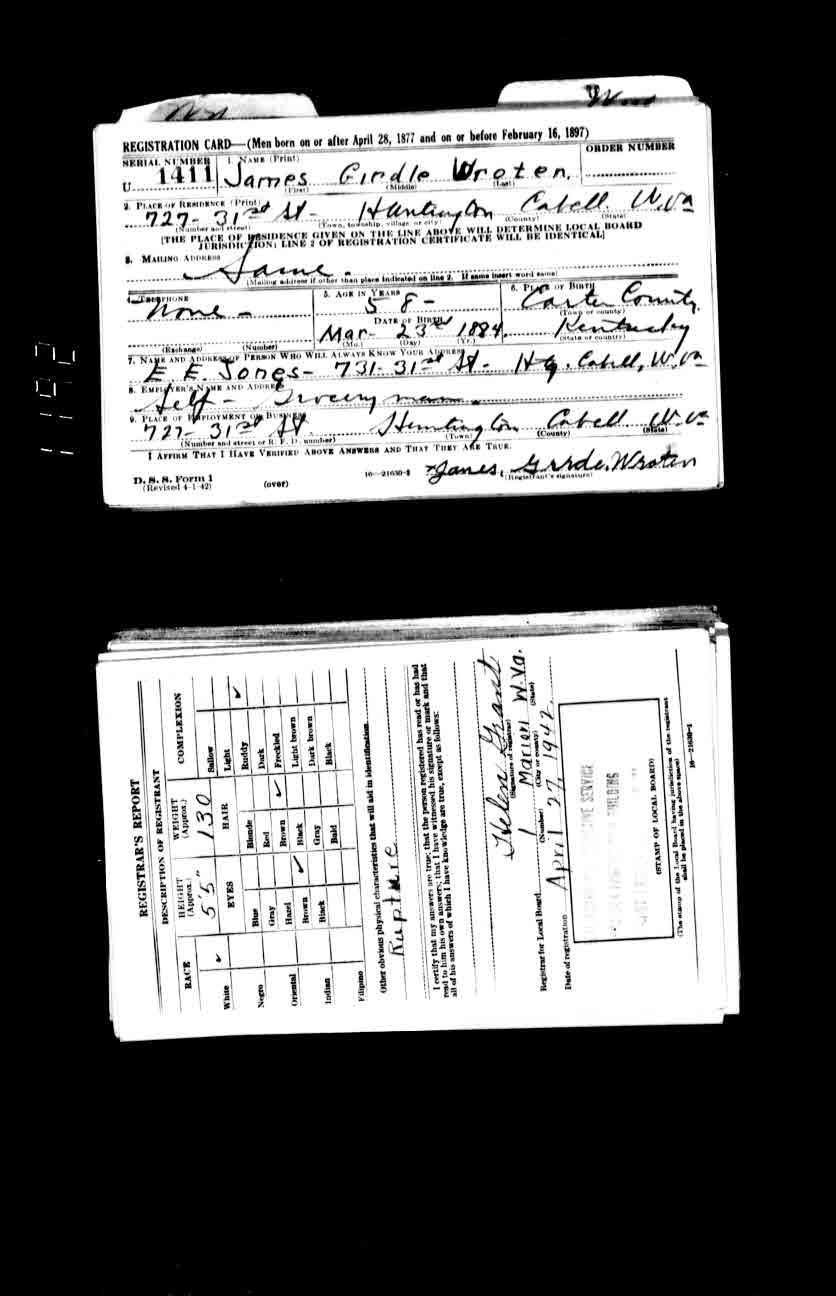 REGISTRATION CARD—(Men born on or after April 28, 1877 and on or before February 16, 1897)
SERIAL NUMBER
1. NAME (Print)
ORDER NUMBER
U 1411
James Girdle Wroten.
(First) (Middle) (Last)
2. PLACE OF RESIDENCE (Print)
727- 31st St- Huntington Cabell W.Va
(Number and street) (Town, township, village or city) (County) (State)
[THE PLACE OF RESIDENCE GIVEN ON THE LINE ABOVE WILL DETERMINE LOCAL BOARD
JURISDICTION; LINE 2 OF REGISTRATION CERTIFICATE WILL BE IDENTICAL]
3. MAILING ADDRESS
Same.
(Mailing address if other than place indicated on line 2. If same insert word same)
4. TELEPHONE
None -
(Exchange) (Number)
5. AGE IN YEARS
58 -
DATE OF BIRTH
Mar- 23rd 1884.
(Mo.) (Day) (Yr.)
6. PLACE OF BIRTH
Carter County
(Town or county)
Kentucky
(State or country)
7. NAME AND ADDRESS OF PERSON WHO WILL ALWAYS KNOW YOUR ADDRESS
E. E. Jones- 731- 31st St- Htg. Cabell, W.Va
8. EMPLOYER'S NAME AND ADDRESS
Self- Grocery man.
9. PLACE OF EMPLOYMENT OR BUSINESS
727- 31st St. Huntington Cabell W.Va
(Number and street or R. F. D. number) (Town) (County) (State)
I AFFIRM THAT I HAVE VERIFIED ABOVE ANSWERS AND THAT THEY ARE TRUE.
D. S. S. Form 1
(Revised 4-1-42)
(over)
16—21630-1
James Wroten
(Registrant's signature)
1192
REGISTRAR'S REPORT
DESCRIPTION OF REGISTRANT
RACE
HEIGHT (Approx.)
WEIGHT (Approx.)
COMPLEXION
5'5"
130
White ✓
Negro
Oriental
Indian
Filipino
EYES
Blue
Gray
Hazel
Brown ✓
Black
HAIR
Blonde
Red
Brown ✓
Black
Gray
Bald
Sallow
Light
Ruddy ✓
Dark
Freckled
Light brown
Dark brown
Black
Other obvious physical characteristics that will aid in identification
Rupture
I certify that my answers are true; that the person registered has read or has had
read to him his own answers; that I have witnessed his signature or mark and that
all of his answers of which I have knowledge are true, except as follows:
Helen Grant
(Signature of registrar)
Registrar for Local Board 1 Marion W.Va.
(Number) (City or county) (State)
Date of registration April 27, 1942
(STAMP OF LOCAL BOARD)
(The stamp of the Local Board having jurisdiction of the registrant
shall be placed in the above space)
16—21630-1